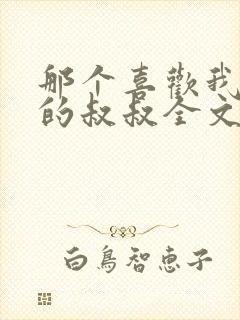 那个喜歡我
的叔叔全文
白鳥智恵子